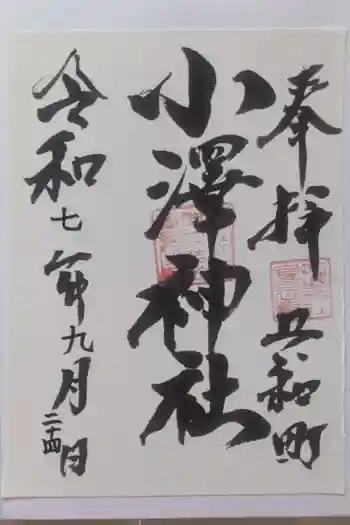 奉拝 共和町
小澤神社
令和七年九月二十四日